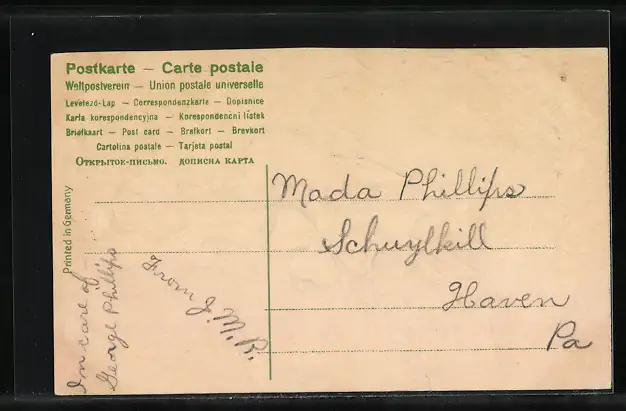 Postkarte — Carte postale
Weltpostverein — Union postale universelle
Levelező-Lap — Correspondenzkarte — Dopisnice
Karta korespondencyjna — Korespondenční lístek
Briefkaart — Post card — Brefkort — Brevkort
Cartolina postale — Tarjeta postal
Открытое-письмо. дописна карта
Printed in Germany
Mada Phillips
Schuylkill
Haven
Pa
In care of
George Phillips
From J. M. R.